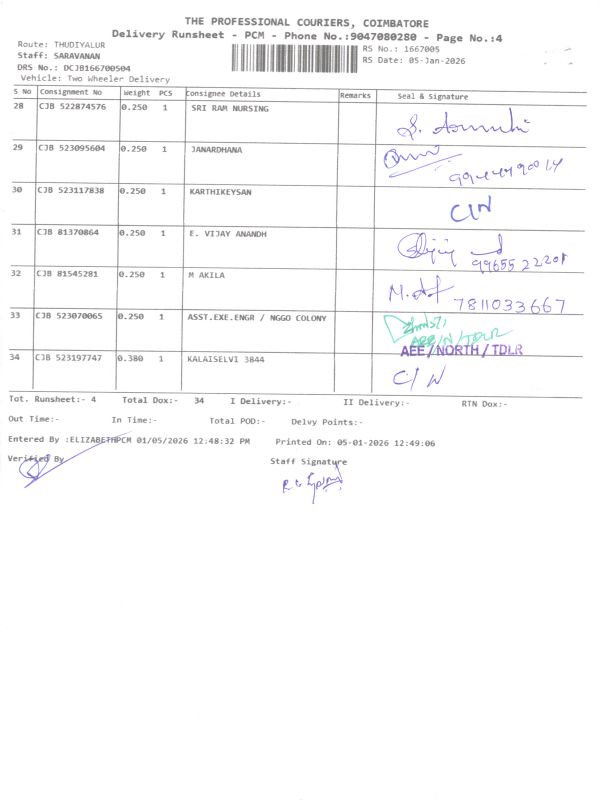 THE PROFESSIONAL COURIERS, COIMBATORE
Delivery Runsheet - PCM - Phone No.:9047080280 - Page No.:4
Route: THUDIYALUR
Staff: SARAVANAN
DRS No.: DCJB166700504
Vehicle: Two Wheeler Delivery
RS No.: 1667005
RS Date: 05-Jan-2026
S No Consignment No Weight PCS Consignee Details Remarks Seal & Signature
28 CJB 522874576 0.250 1 SRI RAM NURSING
29 CJB 523095604 0.250 1 JANARDHANA
30 CJB 523117838 0.250 1 KARTHIKEYSAN C/N
31 CJB 81370864 0.250 1 E. VIJAY ANANDH
99655 22201
32 CJB 81545281 0.250 1 M AKILA
7811033667
33 CJB 523070065 0.250 1 ASST.EXE.ENGR / NGGO COLONY
AEE/N/TDLR
AEE/NORTH/TDLR
34 CJB 523197747 0.380 1 KALAISELVI 3844 C/N
Tot. Runsheet:- 4 Total Dox:- 34 I Delivery:- II Delivery:- RTN Dox:-
Out Time:- In Time:- Total POD:- Delvy Points:-
Entered By :ELIZABETHPCM 01/05/2026 12:48:32 PM Printed On: 05-01-2026 12:49:06
Verified By Staff Signature